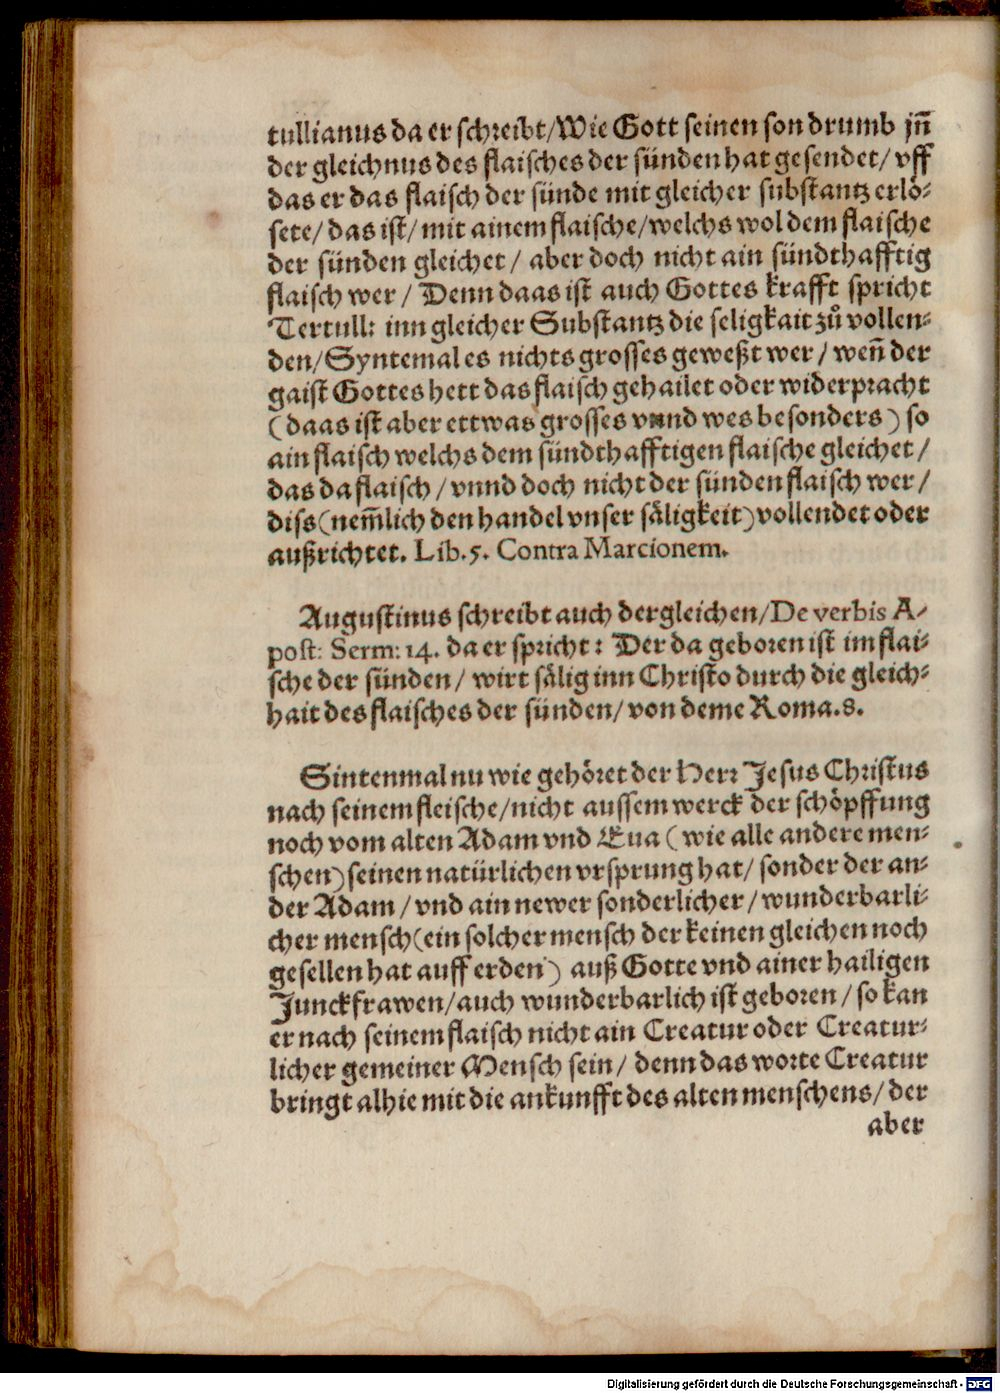 tullianus da er schreibt/Wie Gott seinen son drumb jn̄
der gleichnus des flaisches der sünden hat gesendet/ vff
das er das flaisch der sünde mit gleicher substantz erlö-
sete/ das ist/ mit ainem flaische/welchs wol dem flaische
der sünden gleichet/ aber doch nicht ain sündthafftig
flaisch wer/ Denn daas ist auch Gottes krafft spricht
Tertull: inn gleicher Substantz die seligkait zů vollen-
den/Syntemal es nichts grosses geweßt wer/ wen̄ der
gaist Gottes hett das flaisch gehailet oder widerpracht
(daas ist aber ettwas grosses vnnd wes besonders) so
ain flaisch welchs dem sündthafftigen flaische gleichet/
das da flaisch/ vnnd doch nicht der sünden flaisch wer/
diss(nem̄lich den handel vnser säligkeit)vollendet oder
außrichtet. Lib.5. Contra Marcionem.
Augustinus schreibt auch dergleichen/De verbis A-
post: Serm: 14. da er spricht: Der da geboren ist im flai-
sche der sünden/ wirt sälig inn Christo durch die gleich-
hait des flaisches der sünden/ von deme Roma.8.
Sintenmal nu wie gehöret der Herr Jesus Christus
nach seinem fleische/nicht aussem werck der schöpffung
noch vom alten Adam vnd Eua (wie alle andere men-
schen) seinen natürlichen vrsprung hat/ sonder der an-
der Adam/ vnd ain newer sonderlicher/ wunderbarli-
cher mensch(ein solcher mensch der keinen gleichen noch
gesellen hat auff erden) auß Gotte vnd ainer hailigen
Junckfrawen/auch wunderbarlich ist geboren/ so kan
er nach seinem flaisch nicht ain Creatur oder Creatur-
licher gemeiner Mensch sein/ denn das worte Creatur
bringt alhie mit die ankunfft des alten menschens/ der
aber
Digitalisierung gefördert durch die Deutsche Forschungsgemeinschaft - DFG